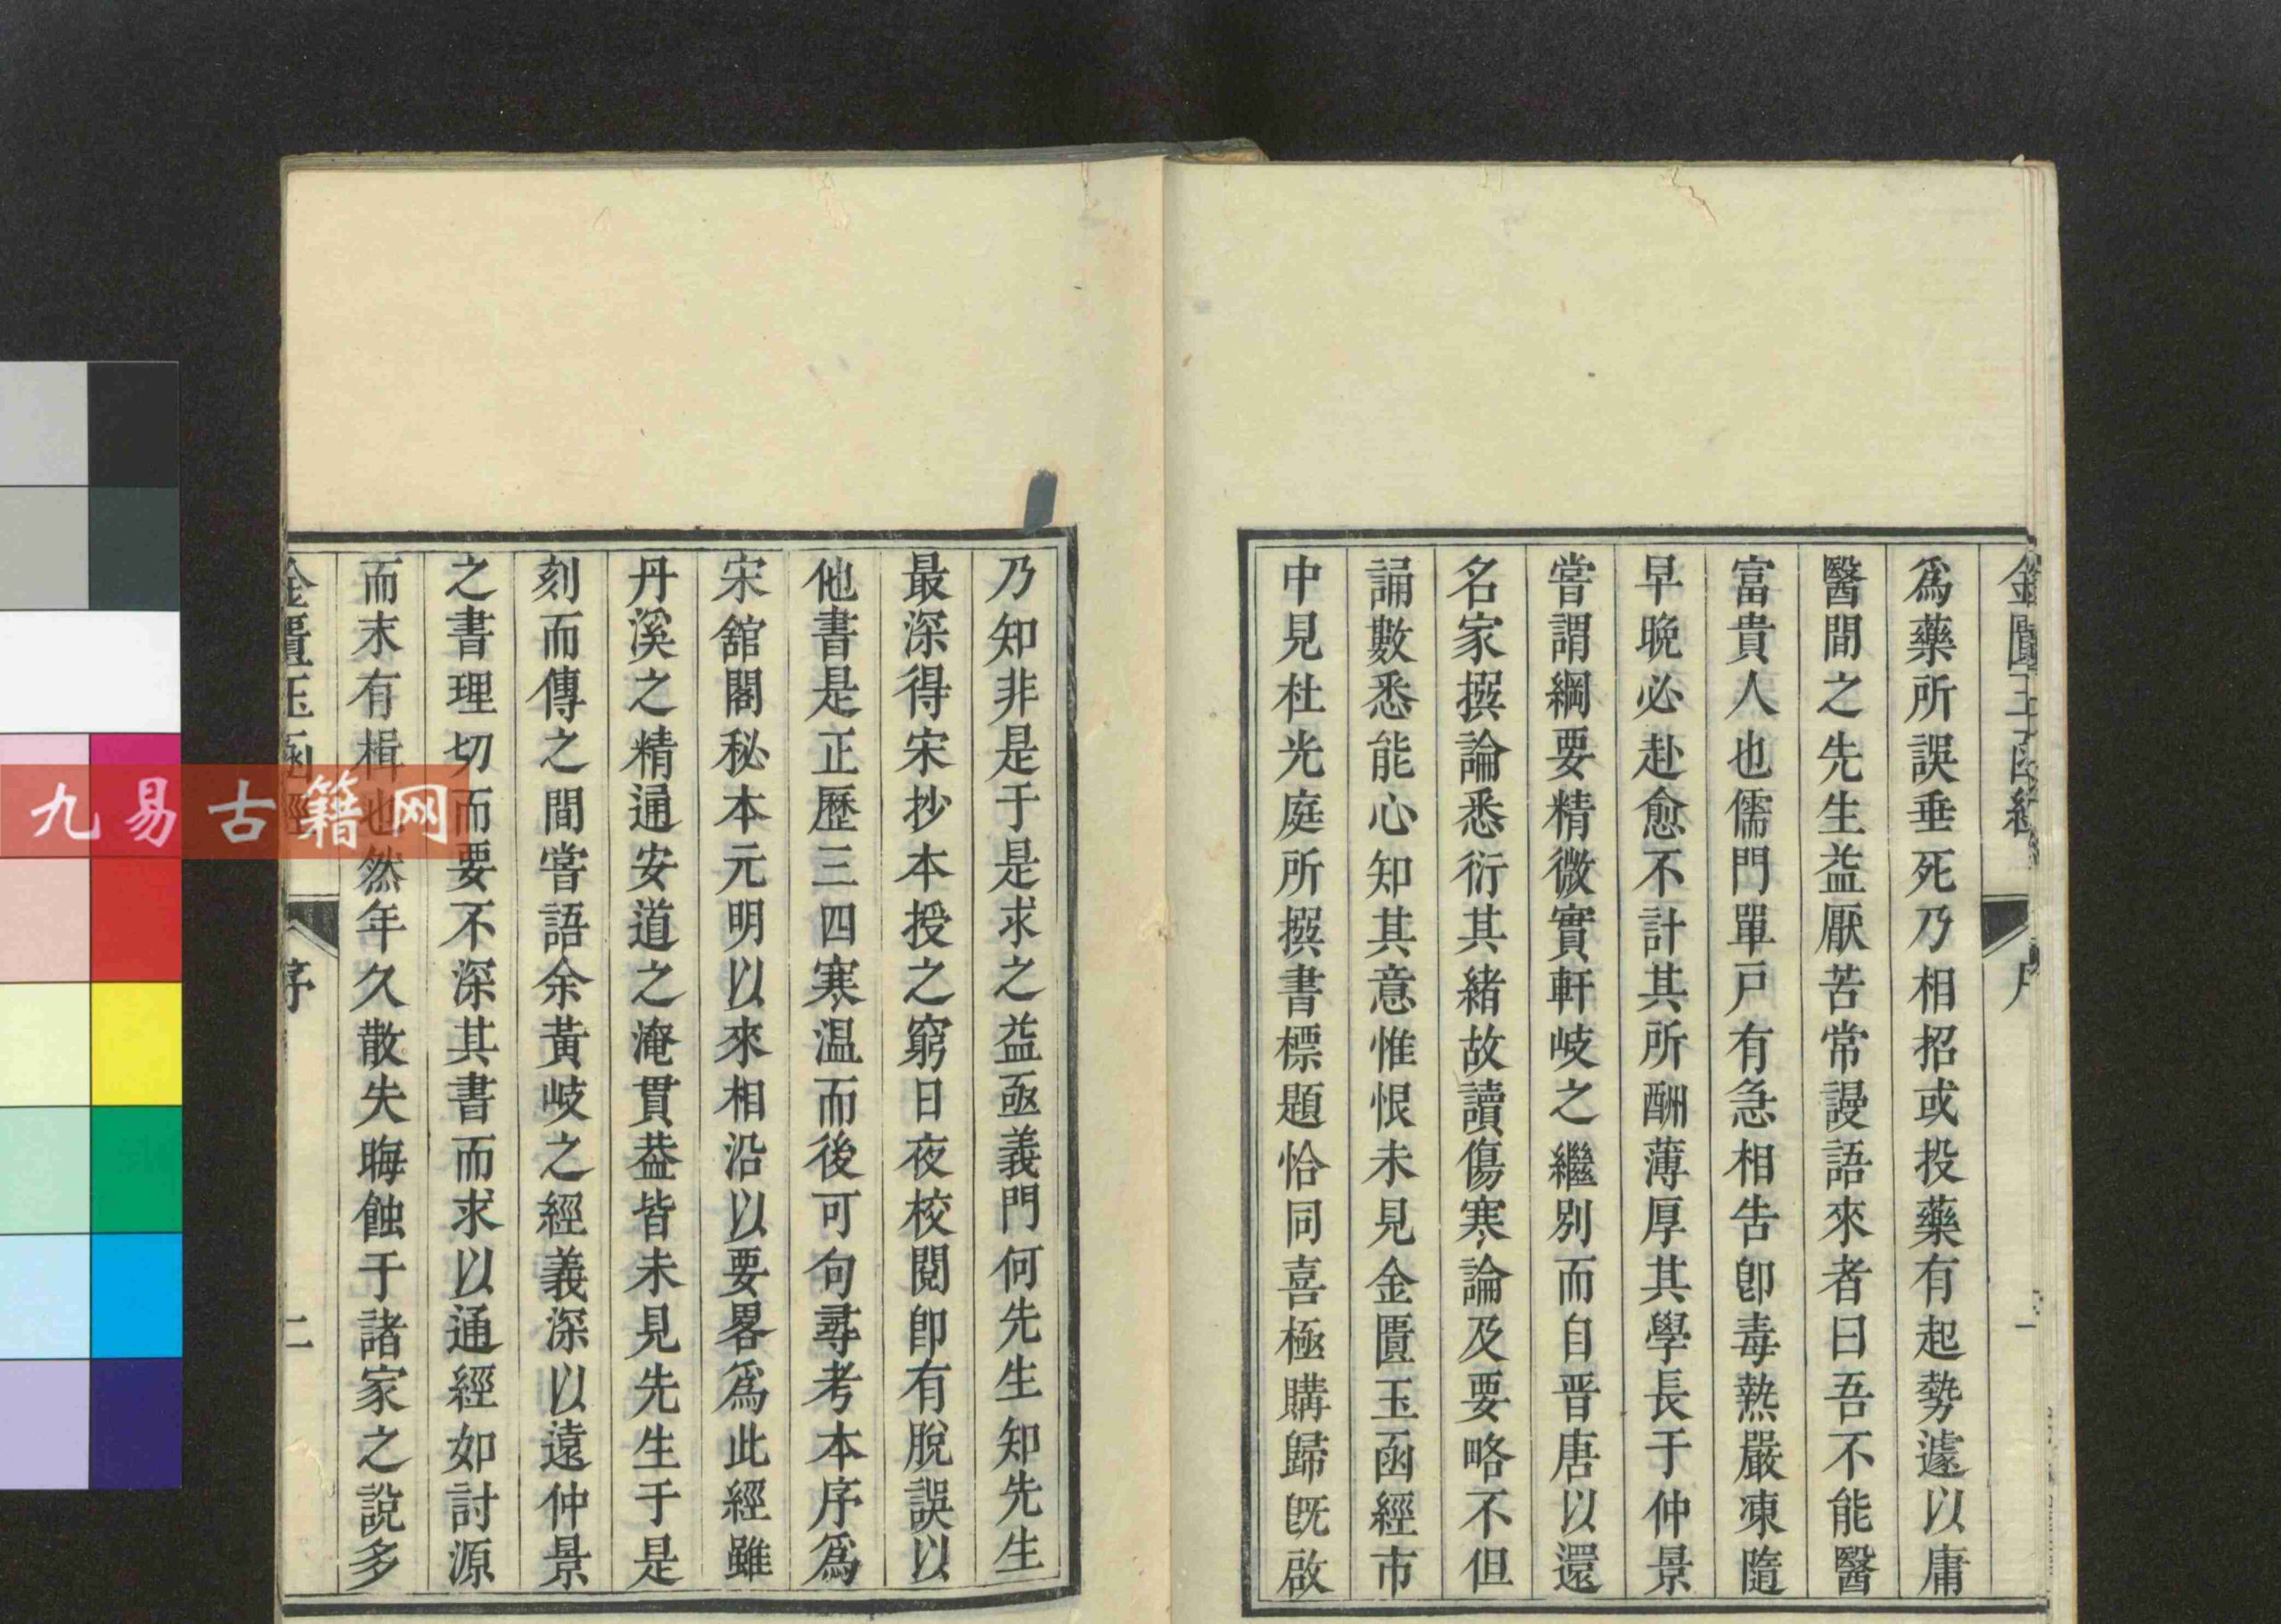 金匱玉函經 序 一
爲藥所誤垂死乃相招或投藥有起勢遽以庸
醫間之先生益厭苦常謾語來者曰吾不能醫
富貴人也儒門單戸有急相告卽毒熱嚴凍隨
早晩必赴愈不計其所酬薄厚其學長于仲景
嘗謂綱要精微實軒岐之繼別而自晋唐以還
名家撰論悉衍其緒故讀傷寒論及要略不但
誦數悉能心知其意惟恨未見金匱玉函經市
中見杜光庭所撰書標題恰同喜極購歸旣啟
乃知非是于是求之益亟義門何先生知先生
最深得宋抄本授之窮日夜校閲卽有脫誤以
他書是正歷三四寒温而後可句尋考本序爲
宋舘閣秘本元明以來相沿以要畧爲此經雖
丹溪之精通安道之淹貫葢皆未見先生于是
刻而傳之間嘗語余黃岐之經義深以遠仲景
之書理切而要不深其書而求以通經如討源
而末有楫也然年久散失晦蝕于諸家之說多
金匱玉函經 序 二
九易古籍网